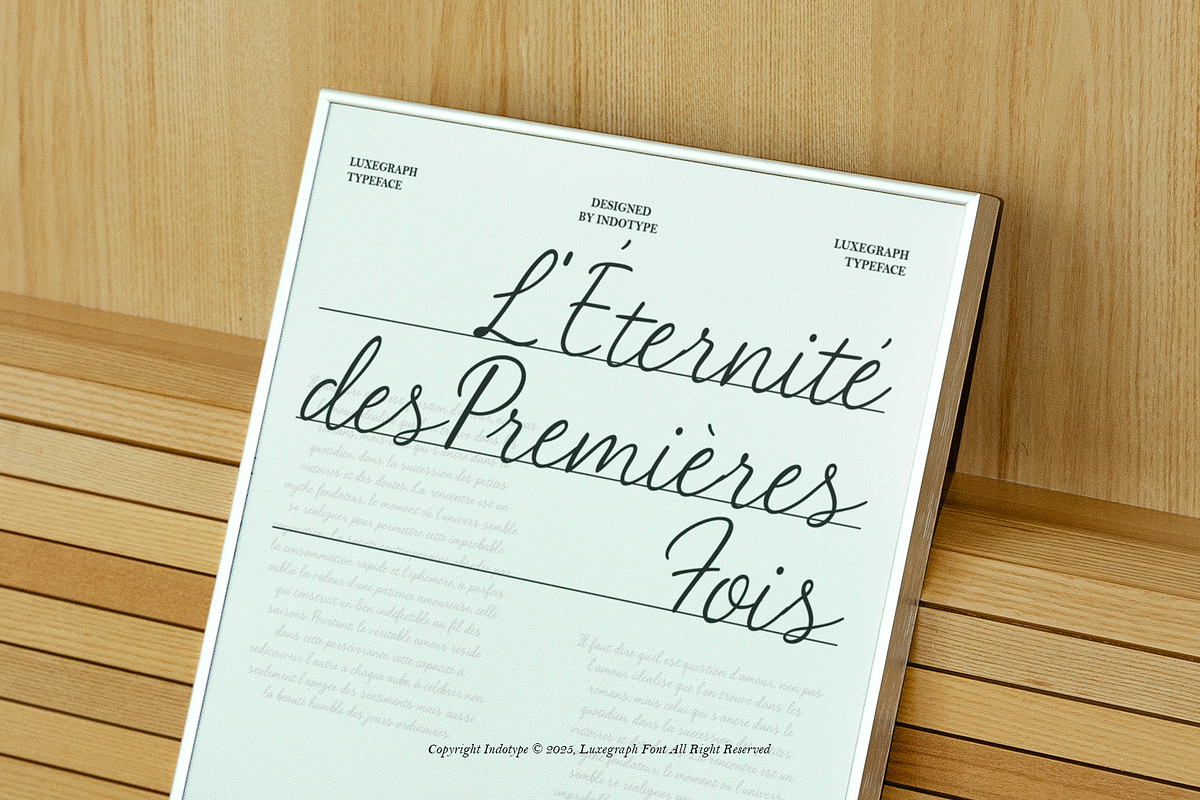 LUXEGRAPH
TYPEFACE
DESIGNED
BY INDOTYPE
LUXEGRAPH
TYPEFACE
L'Éternité
des Premières
Fois
quotidien, dans la succession des petites
victoires et des doutes. La rencontre est un
mythe fondateur, le moment où l'univers semble
se réaligner pour permettre cette improbable
la consommation rapide et l'éphémère, a parfois
oublié la valeur d'une patience amoureuse, celle
qui construit un lien indéfectible au fil des
saisons. Pourtant, le véritable amour réside
dans cette persévérance, cette capacité à
redécouvrir l'autre à chaque aube, à célébrer non
seulement l'apogée des sentiments mais aussi
la beauté humble des jours ordinaires.
Il faut dire qu'il est question d'amour, non pas
l'amour idéalisé que l'on trouve dans les
romans, mais celui qui s'ancre dans le
quotidien, dans la succession des petites
victoires et des doutes. La rencontre est un
mythe fondateur, le moment où l'univers
semble se réaligner pour
Copyright Indotype © 2025, Luxegraph Font All Right Reserved